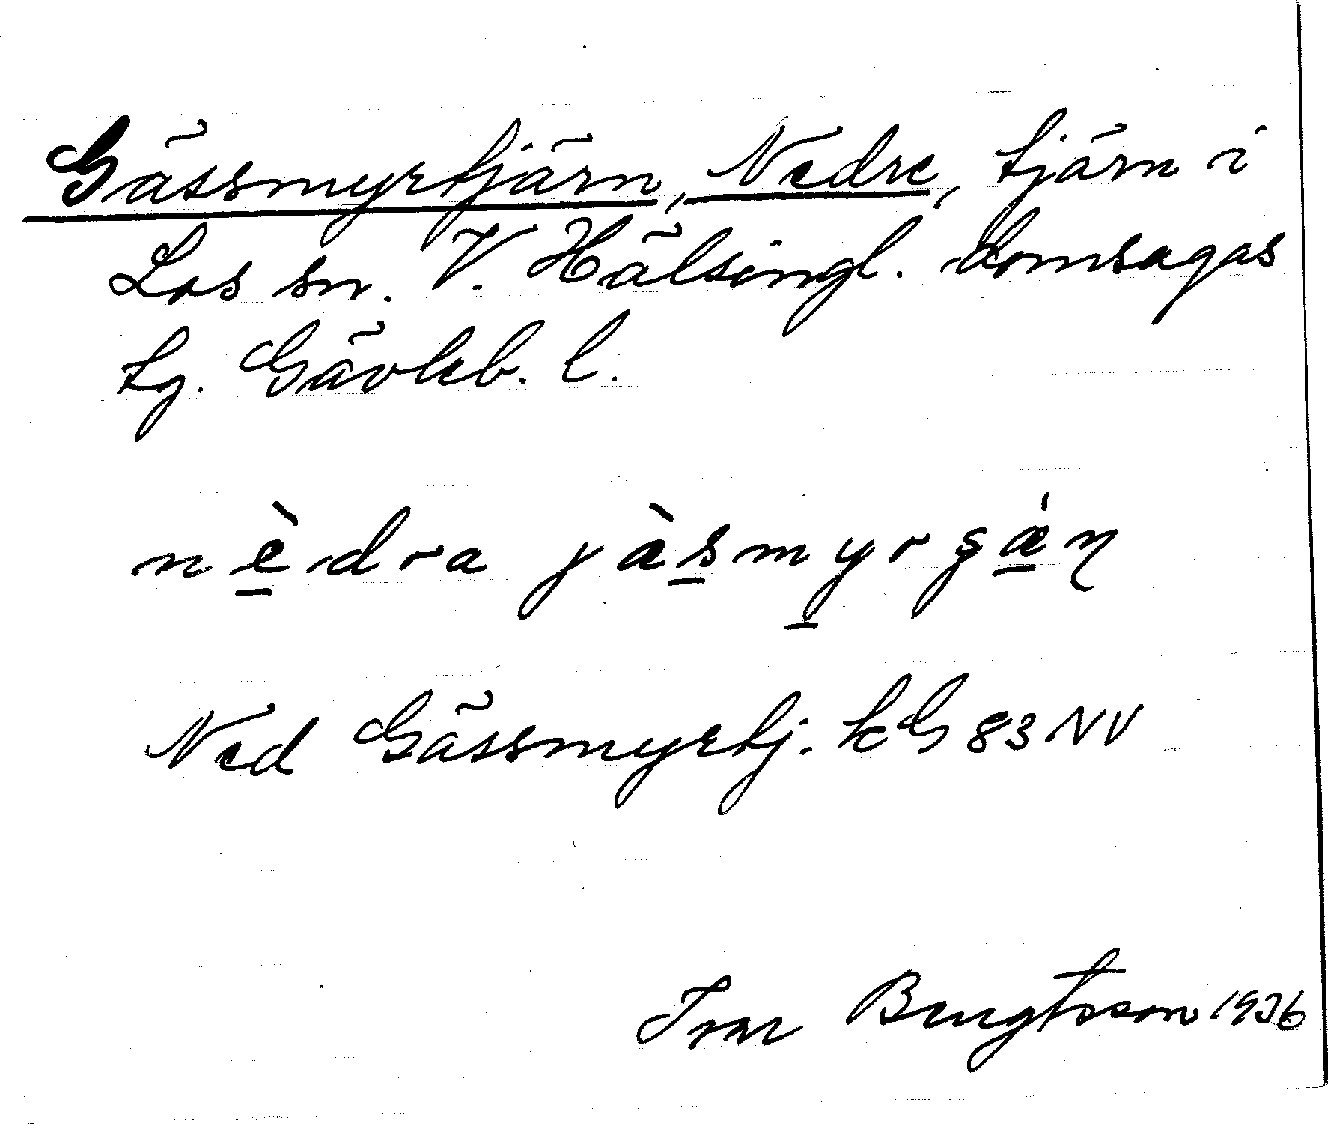 Gässmyrtjärn, Nedre, tjärn i
Los sn. V. Hälsingl. domsagas
tg. Gävleb. l.
nèdra jàsmyrʂæ̀ɳ
Ned Gässmyrtj. kG 83 NV
Ivar Bengtsson 1936